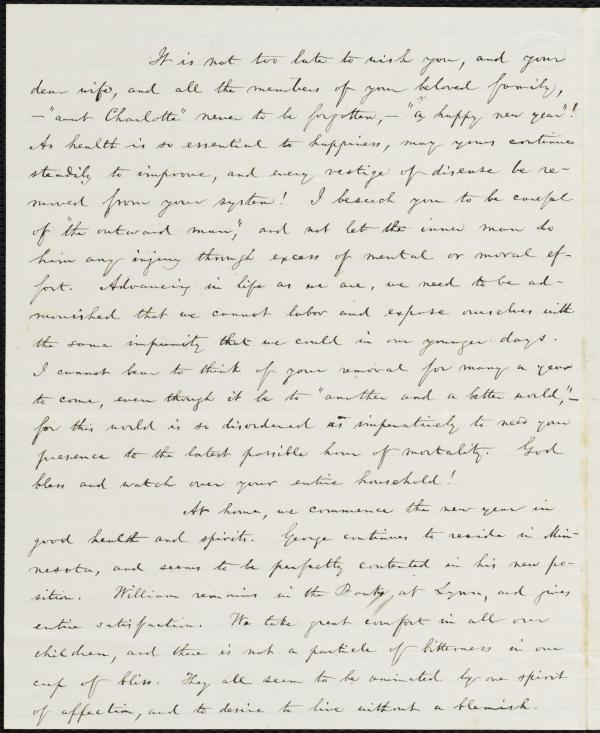 It is not too late to wish you, and your
dear wife, and all the members of your beloved family,
— "aunt Charlotte" never to be forgotten, — "a happy new year"!
As health is so essential to happiness, may yours continue
steadily to improve, and every vestige of disease be re-
moved from your system! I beseech you to be careful
of "the outward man", and not let the inner man do
him any injury through excess of mental or moral ef-
fort. Advancing in life as we are, we need to be ad-
monished that we cannot labor and expose ourselves with
the same impunity that we could in our younger days.
I cannot bear to think of your removal for many a year
to come, even though it be to "another and a better world," —
for this world is so disordered as imperatively to need your
presence to the latest possible hour of mortality. God
bless and watch over your entire household!
At home, we commence the new year in
good health and spirits. George continues to reside in Min-
nesota, and seems to be perfectly contented in his new po-
sition. William remains in the Bank, at Lynn, and gives
entire satisfaction. We take great comfort in all our
children, and there is not a particle of bitterness in our
cup of bliss. They all seem to be animated by one spirit
of affection, and to desire to live without a blemish.